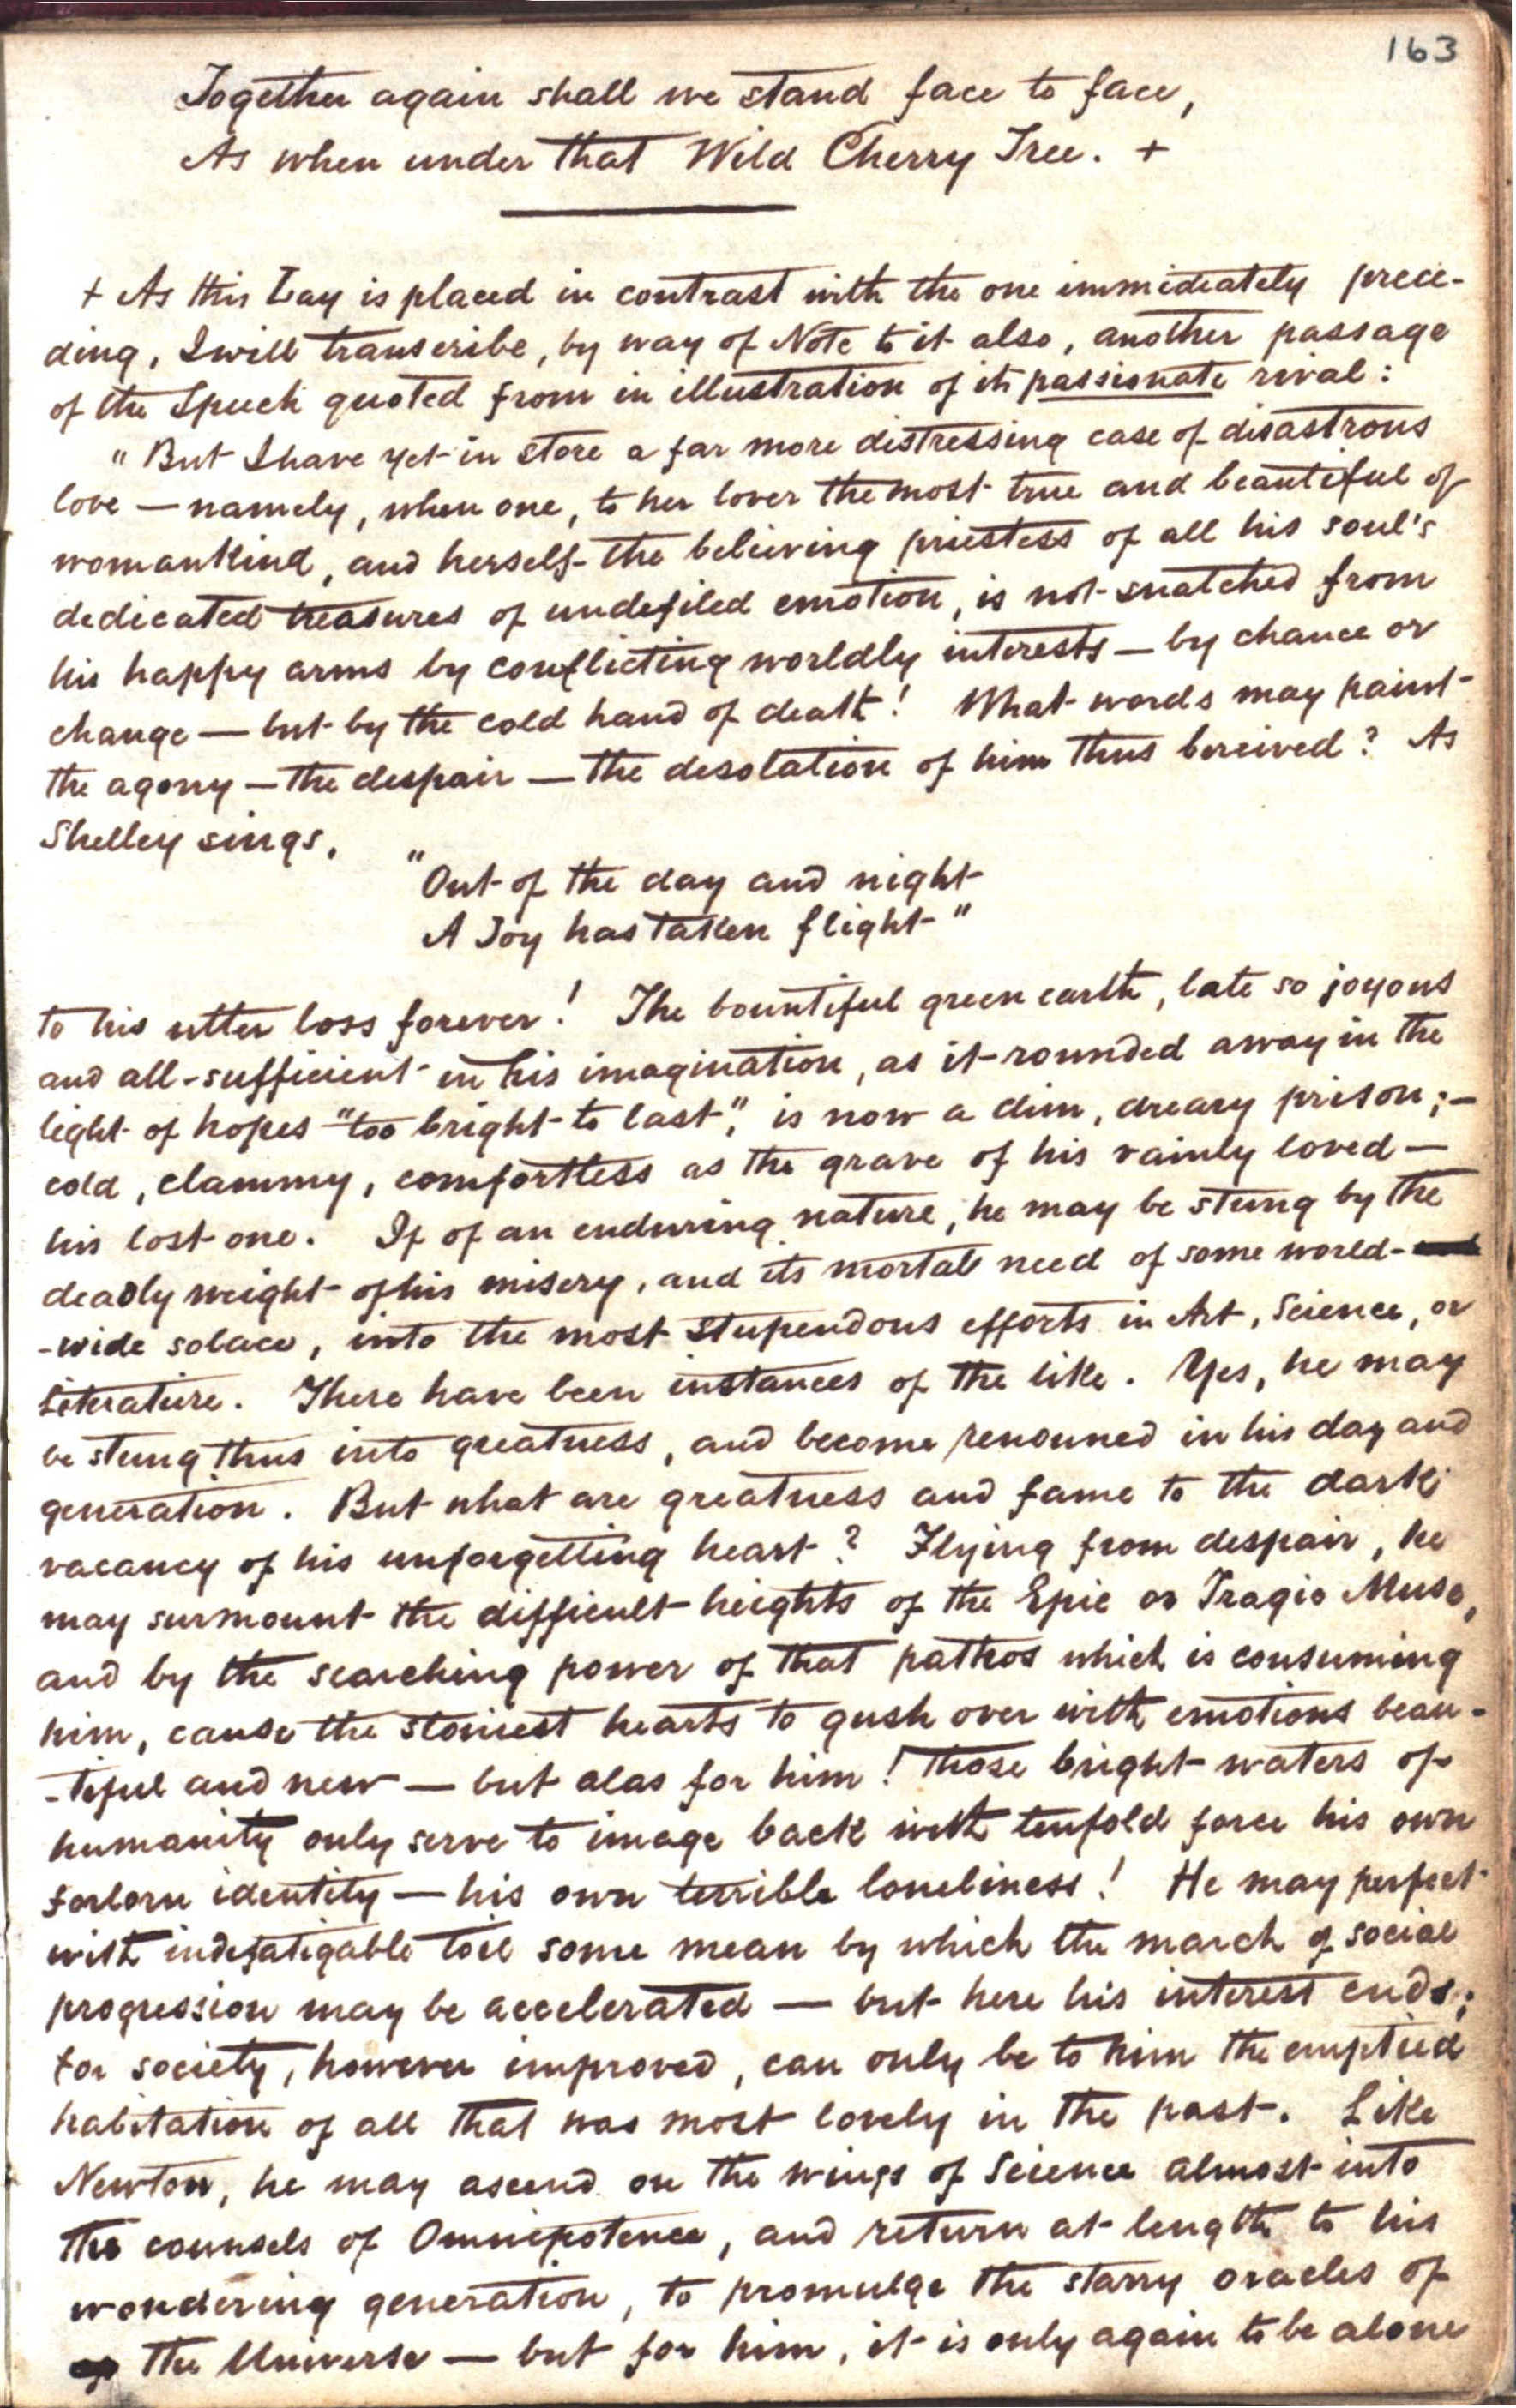 163
Together again shall we stand face to face,
As when under that Wild Cherry Tree. +
+ As this Lay is placed in contrast with the one immediately prece-
ding, I will transcribe, by way of Note to it also, another passage
of the Speech quoted from in illustration of its passionate rival:
"But I have yet in store a far more distressing case of disastrous
love — namely, when one, to her lover the most true and beautiful of
womankind, and herself the believing priestess of all his soul's
dedicated treasures of undefiled emotion, is not snatched from
his happy arms by conflicting worldly interests — by chance or
change — but by the cold hand of death! What words may paint
the agony — the despair — the desolation of him thus bereived? As
Shelley sings,
"Out of the day and night
A Joy has taken flight"
to his utter loss forever! The bountiful green earth, late so joyous
and all-sufficient in his imagination, as it rounded away in the
light of hopes "too bright to last", is now a dim, dreary prison; —
cold, clammy, comfortless as the grave of his vainly loved —
his lost one. If of an enduring nature, he may be stung by the
deadly weight of his misery, and its mortal need of some world-
-wide solace, into the most stupendous efforts in Art, Science, or
Literature. There have been instances of the like. Yes, he may
be stung thus into greatness, and become renouned in his day and
generation. But what are greatness and fame to the dark
vacancy of his unforgetting heart? Flying from despair, he
may surmount the difficult heights of the Epic or Tragic Muse,
and by the searching power of that pathos which is consuming
him, cause the stoniest hearts to gush over with emotions beau-
-tiful and new — but alas for him! those bright waters of
humanity only serve to image back with tenfold force his own
forlorn identity — his own terrible loneliness! He may perfect
with indefatigable toil some mean by which the march of social
progression may be accelerated — but here his interest ends;
for society, however improved, can only be to him the emptied
habitation of all that was most lovely in the past. Like
Newton, he may ascend on the wings of Science almost into
the counsels of Omnipotence, and return at length to his
wondering generation, to promulge the starry oracles of
the Universe — but for him, it is only again to be alone